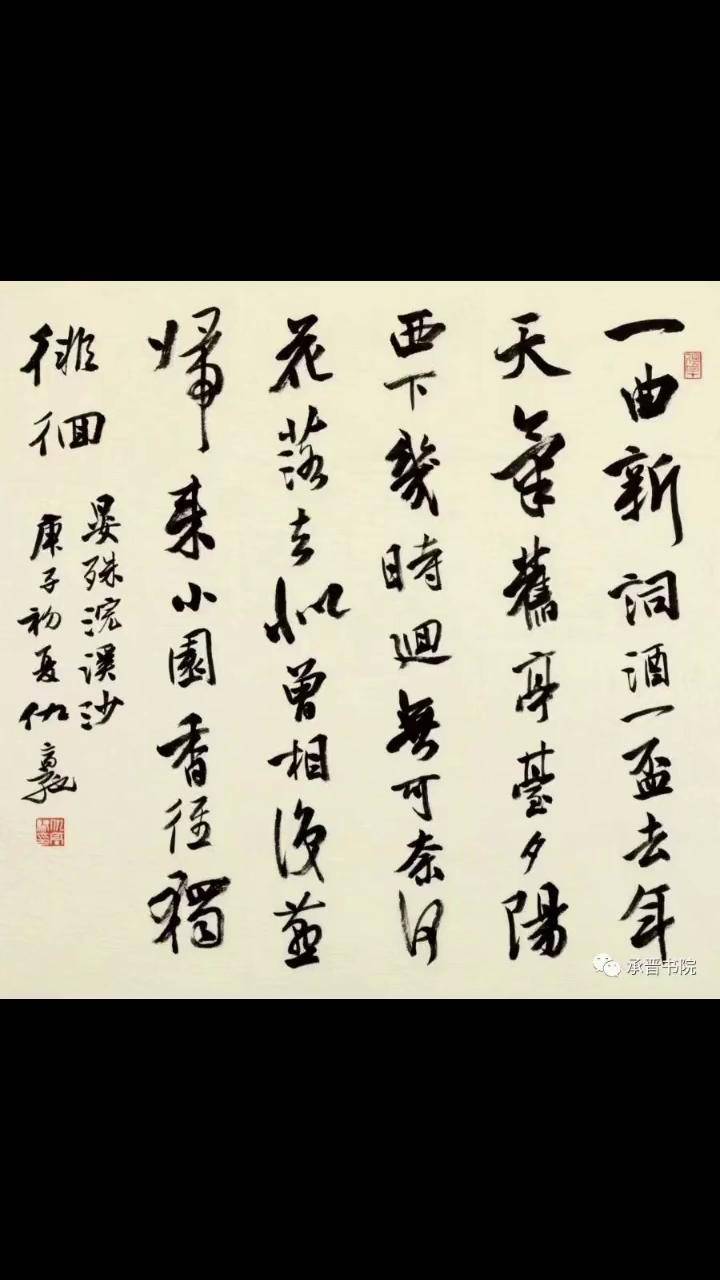 一曲新詞酒一盃去年
天氣舊亭臺夕陽
西下幾時迴無可奈何
花落去似曾相識燕
歸來小園香徑獨
徘徊
晏殊浣溪沙
庚子初夏仇敦
承晋书院